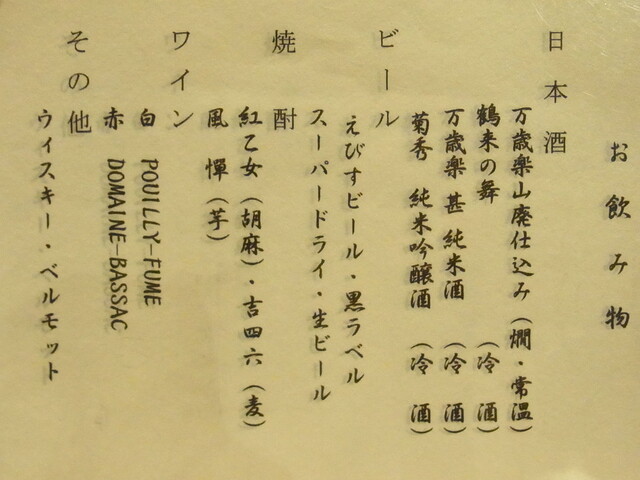 お飲み物
日本酒
万歳楽山廃仕込み(燗・常温)
鶴来の舞 (冷酒)
万歳楽 甚 純米酒 (冷酒)
菊秀 純米吟醸酒 (冷酒)
ビール
えびすビール・黒ラベル
スーパードライ・生ビール
焼酎
紅乙女(胡麻)・吉四六(麦)
風憚(芋)
ワイン
白 POUILLY-FUME
赤 DOMAINE-BASSAC
その他
ウィスキー・ベルモット